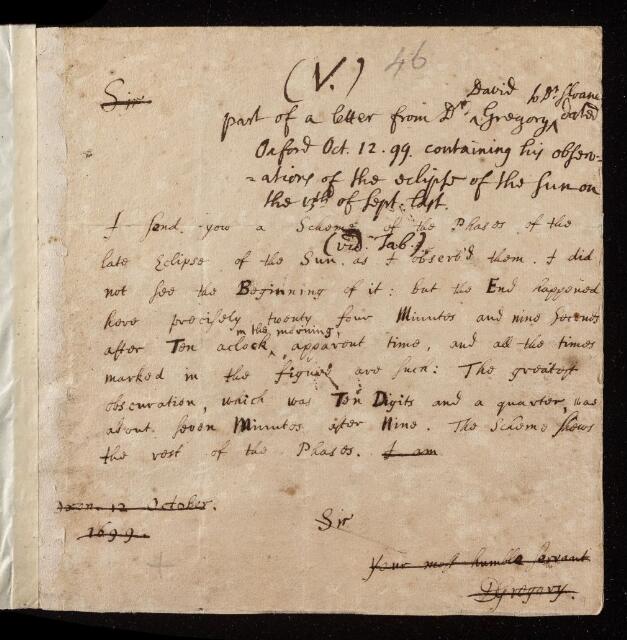 (V.) 46
Sir
David to Dr. Sloane
part of a letter from Dr. Gregory dated
Oxford Oct. 12. 99. containing his observ-
-ations of the eclipse of the Sun on
the 13th of Sept. last.
I send you a Scheme of the Phases of the
(vid. Tab.)
late Eclipse of the Sun as I observ'd them. I did
not see the Beginning of it: but the End happened
here precisely twenty four Minutes and nine Seconds
in the morning
after Ten aclock, apparent time, and all the times
marked in the figure are such: The greatest
obscuration, which was Ten Digits and a quarter, was
about seven Minutes after Nine. The Scheme shews
the rest of the Phases. I am
Oxon. 12 October.
1699.
Sir
your most humble servant
DGregory.